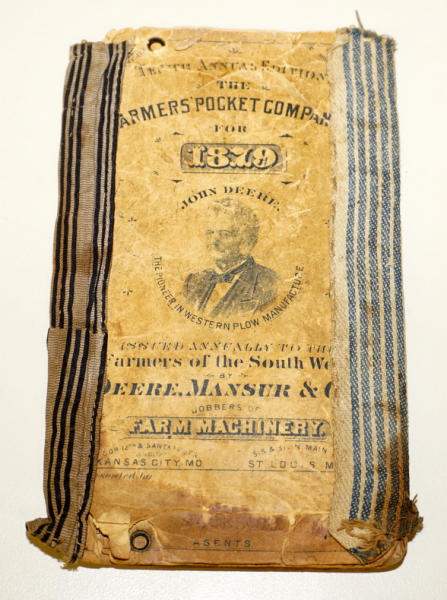 TENTH ANNUAL EDITION
THE
ARMERS' POCKET COMPAN
FOR
1879
JOHN DEERE.
THE PIONEER IN WESTERN PLOW MANUFACTURE
ISSUED ANNUALLY TO THE
Farmers of the South We
BY
DEERE, MANSUR & C
JOBBERS OF
FARM MACHINERY.
COR 12TH & SANTA FE
S.E. MAIN
KANSAS CITY, MO
ST. LOUIS, M
AGENTS.